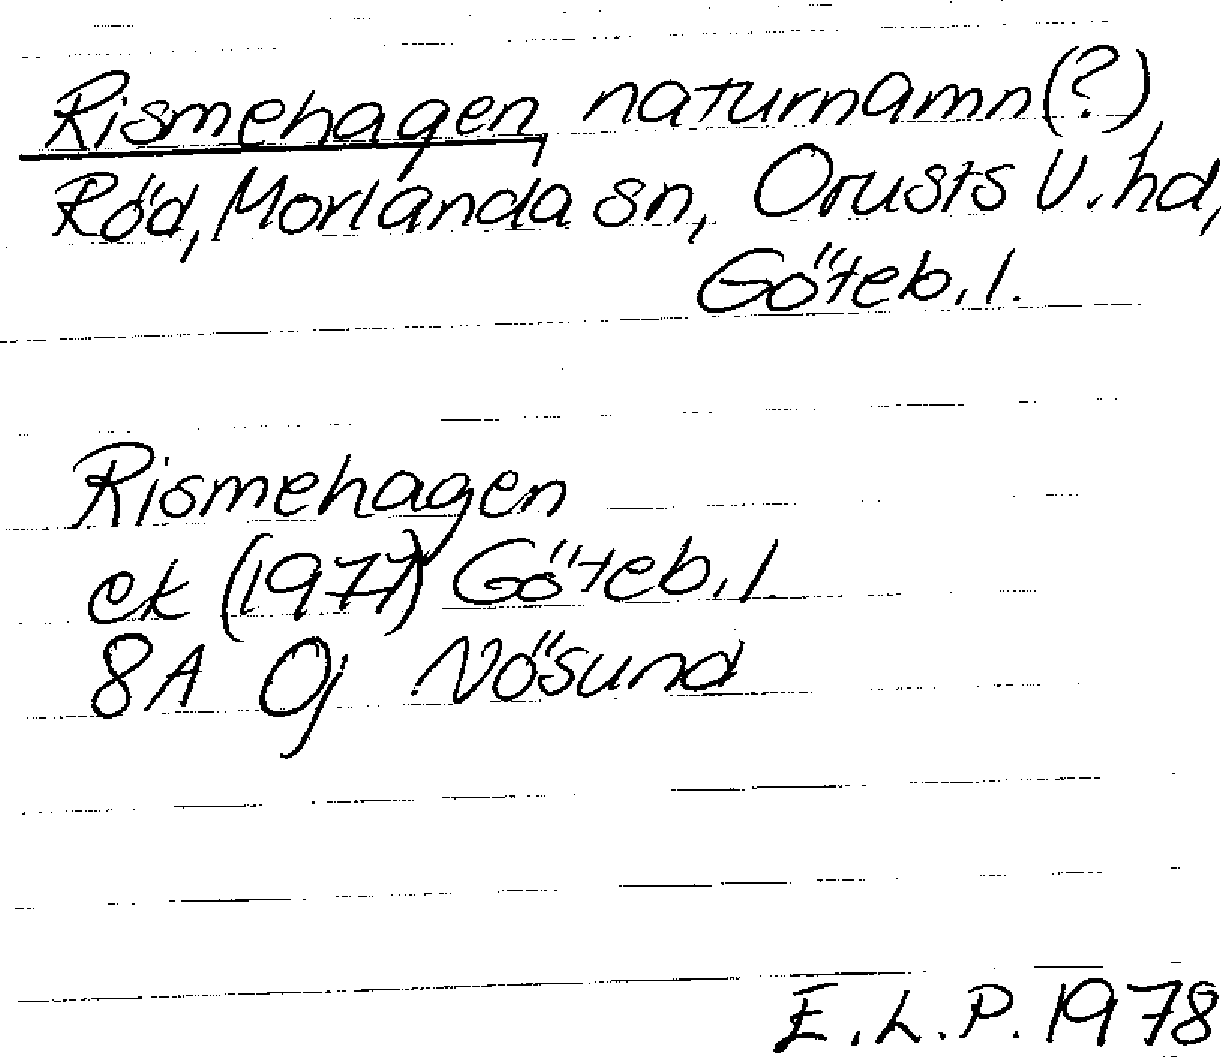 Rismehagen, naturnamn(?),
Röd, Morlanda sn, Orusts V. hd,
Göteb. l.
Rismehagen
ek (1977) Göteb. l.
8A 0j Nösund
E. L. P. 1978